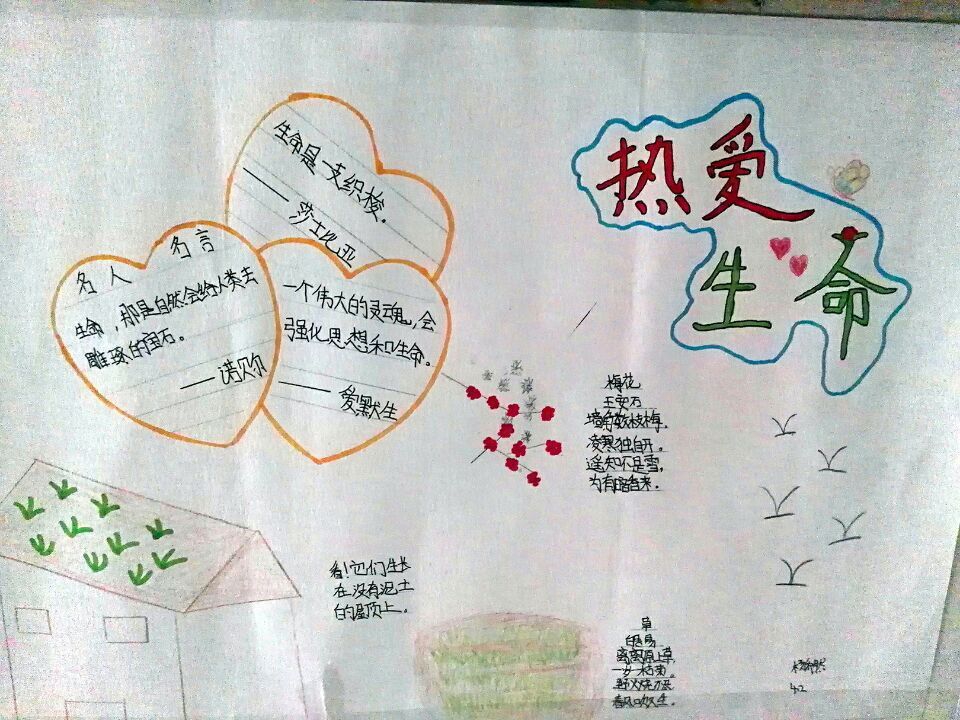 热爱
生命
生命是一支织梭。
——莎士比亚
名人名言
生命，那是自然会给人类去
雕琢的宝石。
——诺贝尔
一个伟大的灵魂，会
强化思想和生命。
——爱默生
梅花
王安石
墙角数枝梅，
凌寒独自开。
遥知不是雪，
为有暗香来。
看！它们生长
在没有泥土
的屋顶上。
草
白居易
离离原上草，
一岁一枯荣。
野火烧不尽
春风吹又生。